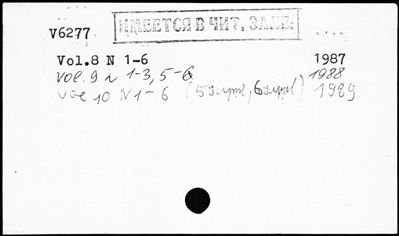 ИМЕЕТСЯ В ЧИТ. ЗАЛЕ.
V6277
Vol.8 N 1-6 1987
Vol. 9 N 1-3, 5-6 1988
Vol 10 N 1-6 1989